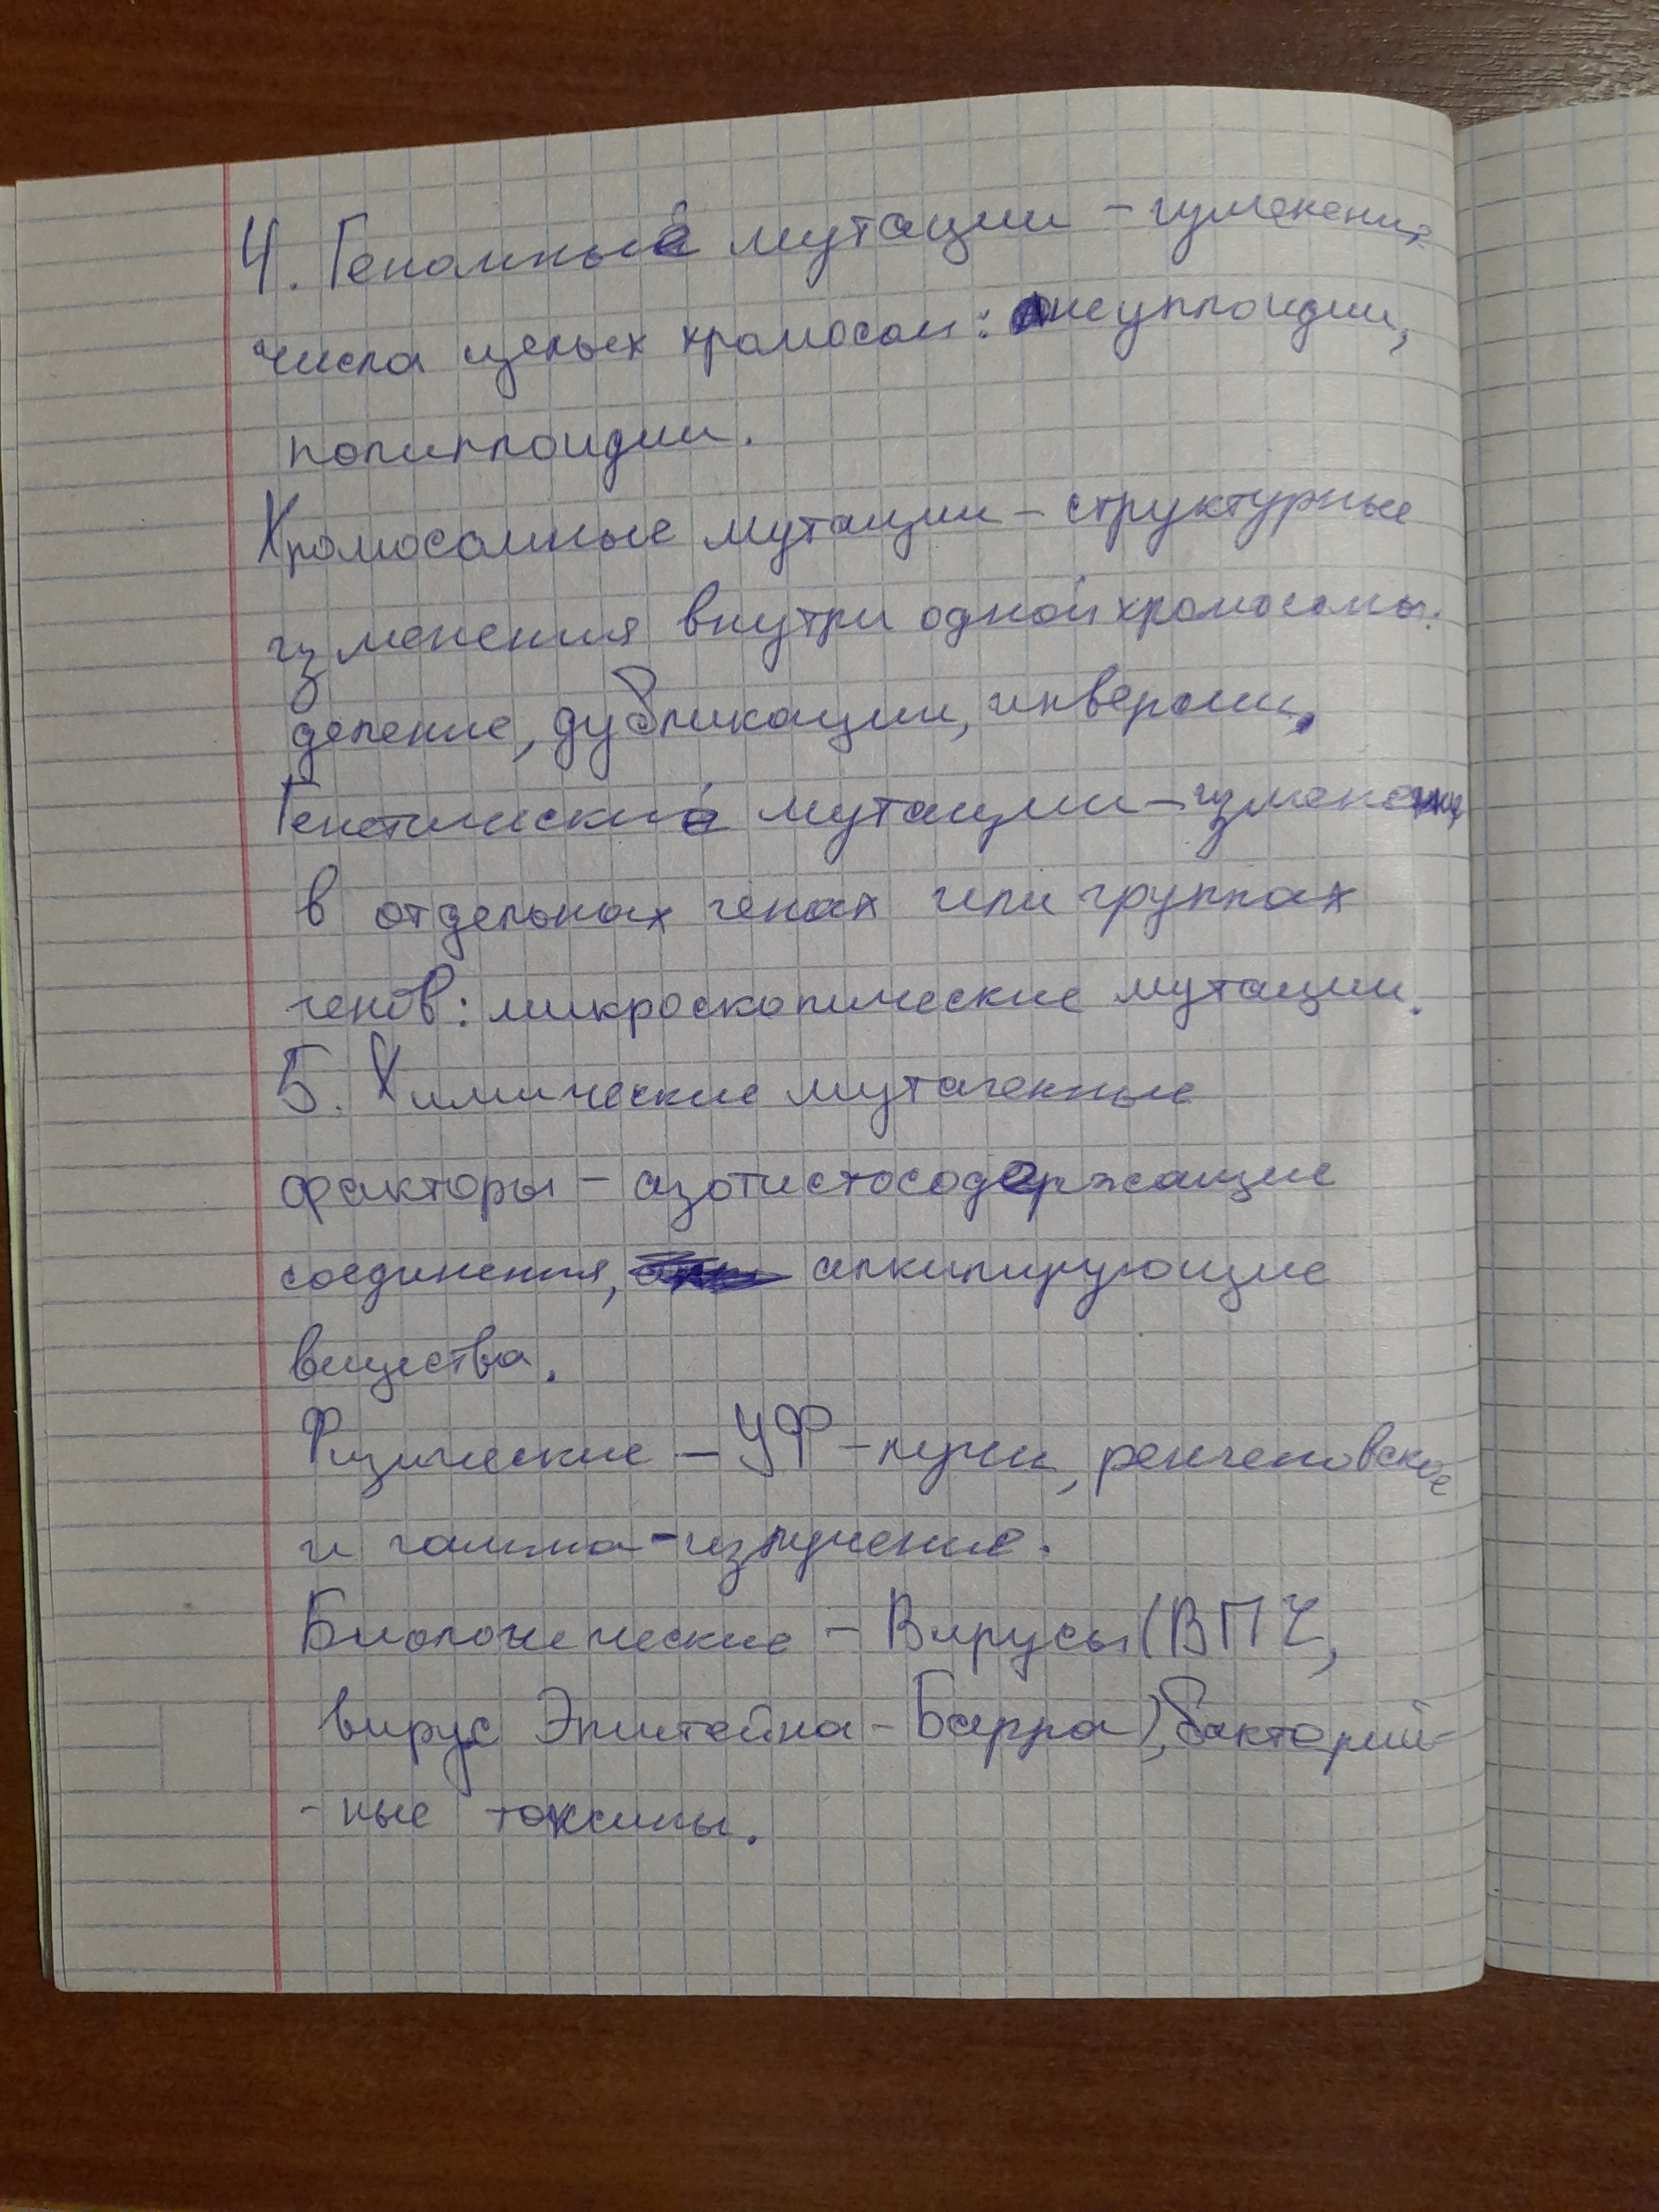 4. Геномные мутации - изменения
числа целых хромосом: анеуплоидии,
полиплоидии.
Хромосомные мутации - структурные
изменения внутри одной хромосомы:
деление, дубликации, инверсии,
Генетические мутации - изменения
в отдельных генах или группах
генов: микроскопические мутации.
5. Химические мутагенные
факторы - азотистосодержащие
соединения, алкилирующие
вещества.
Физические - УФ - лучи, ренгеновское
и гамма - излучение.
Биологические - Вирусы (ВПЧ,
вирус Эпштейна - Барра), бактерий-
-ные токсины.